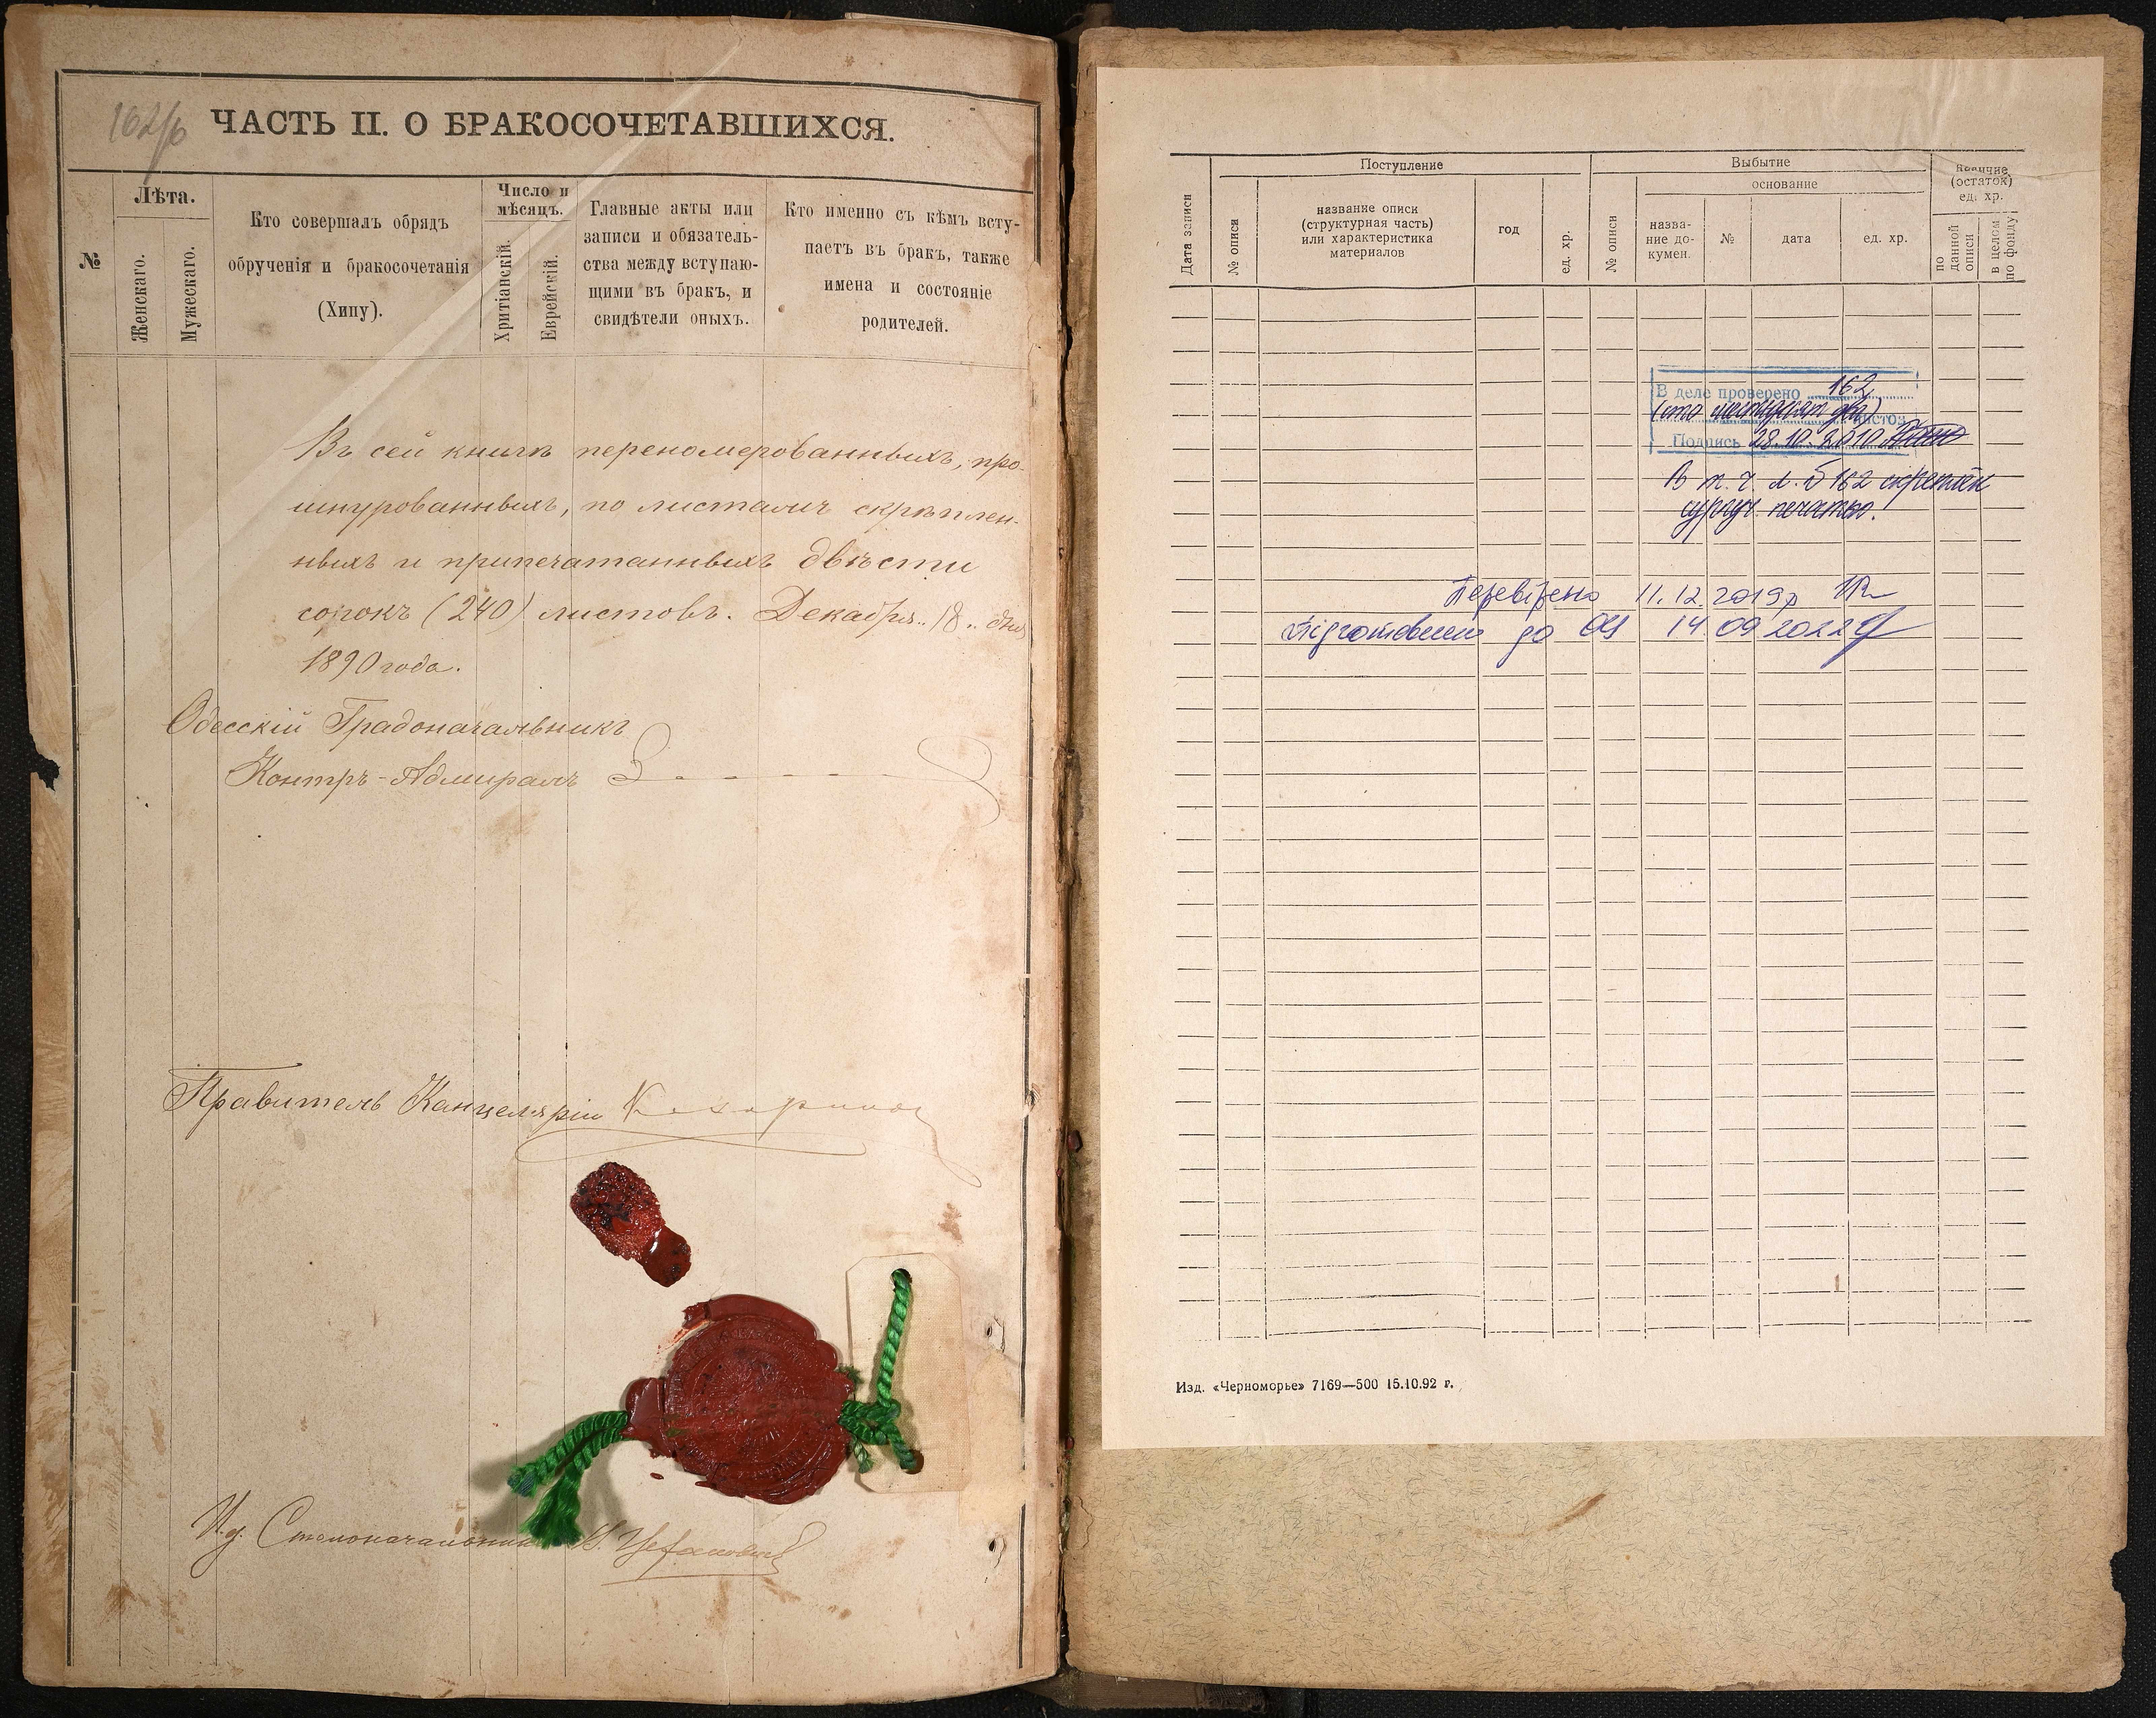 162/б
ЧАСТЬ II. О БРАКОСОЧЕТАВШИХСЯ.
№
Лѣта.
Женскаго.
Мужескаго.
Кто совершалъ обрядъ
обрученія и бракосочетанія
(Хипу).
Число и
мѣсяцъ.
Хритіанскій.
Еврейскій.
Главные акты или
записи и обязатель-
ства между вступаю-
щими въ бракъ, и
свидѣтели оныхъ.
Кто именно съ кѣмъ всту-
паетъ въ бракъ, также
имена и состояніе
родителей.
Въ сей книгѣ переномерованныхъ, про-
шнурованныхъ, по листамъ скрѣплен-
ныхъ и припечатанныхъ двѣсти
сорокъ (240) листовъ. Декабря 18 дня
1890 года.
Одесскій Градоначальникъ
Контръ-Адмиралъ
Правитель Канцеляріи
И.д. Столоначальника
Дата записи
Поступление
№ описи
название описи
(структурная часть)
или характеристика
материалов
год
ед. хр.
Выбытие
№ описи
основание
назва-
ние до-
кумен.
№
дата
ед. хр.
Наличие
(остаток)
ед. хр.
по
данной
описи
в целом
по фонду
В деле проверено 162
(сто шестьдесят два) листов
Подпись 28.10.2010
В т. ч. л. б 162 скреплён
сургуч. печатью.
Перевірено 11.12.2019р
Підготовлено до ОЦ 14 09 2022
Изд. «Черноморье» 7169—500 15.10.92 г.